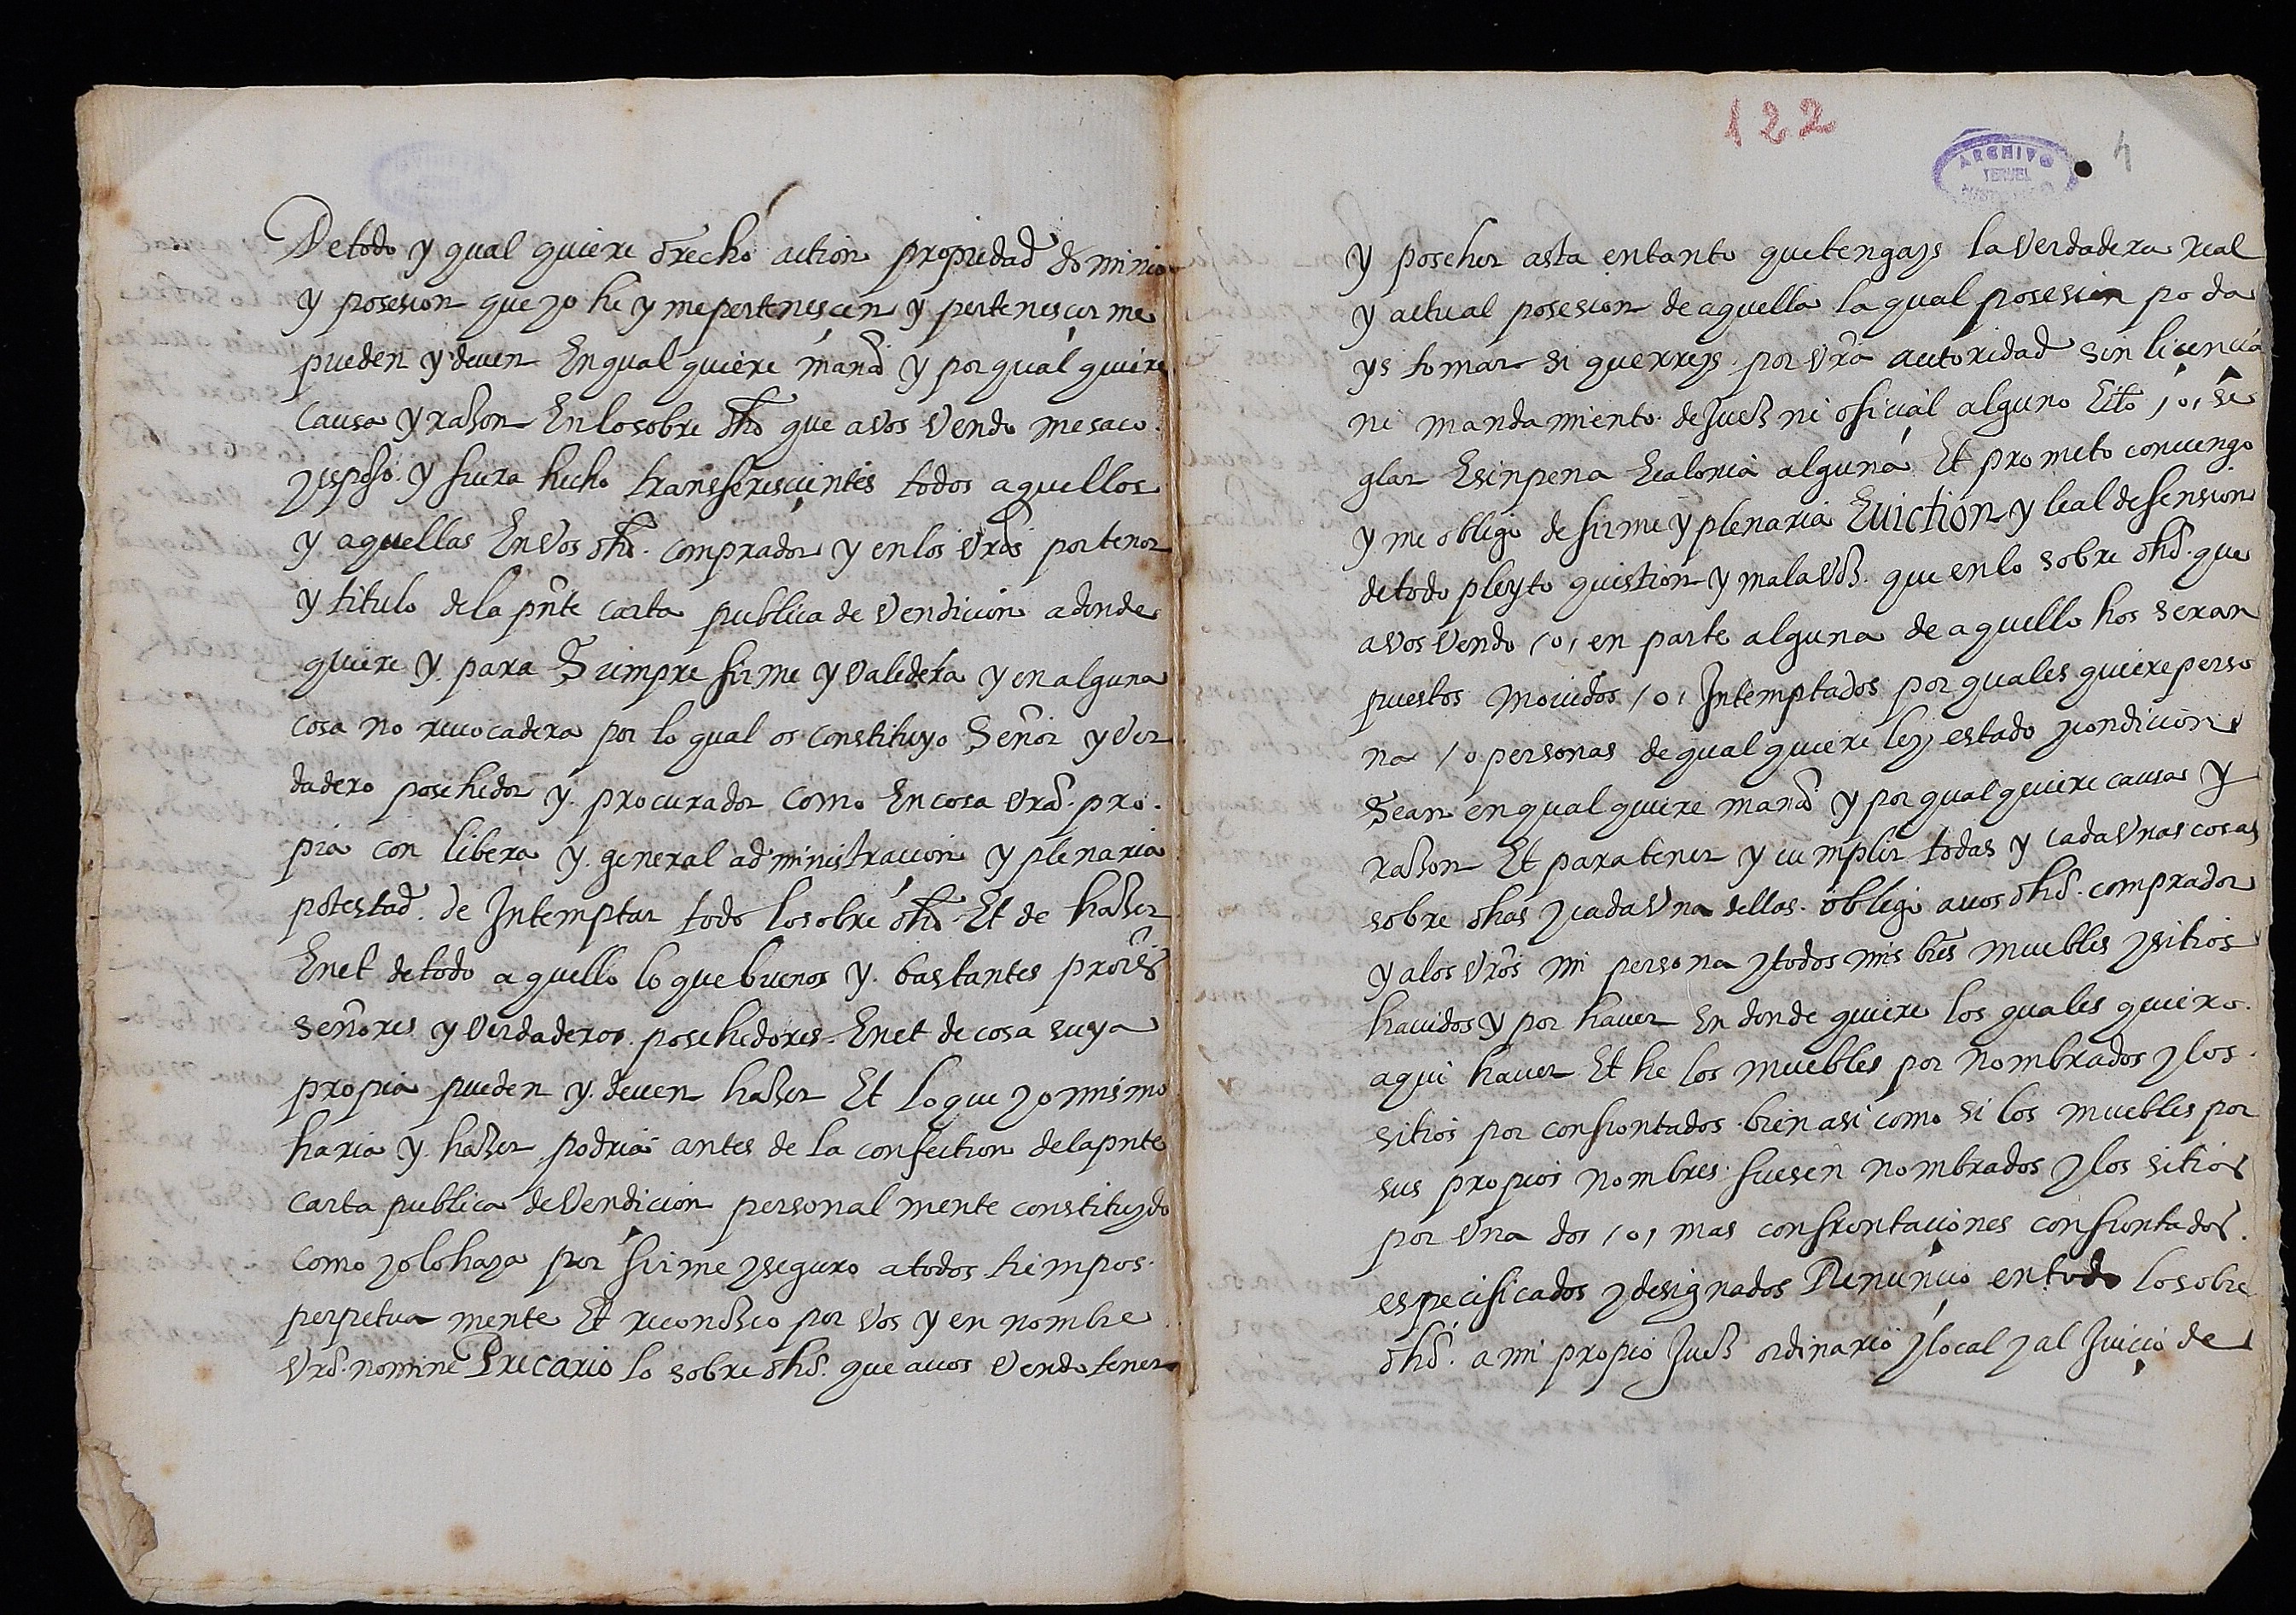 De todo y qual quiere drecho action propiedad dominio
y posesion que yo he y me pertenescen y pertenescer me
pueden y deuen En qual quiere manª y por qual quiere
causa y razon En lo sobre dho que a vos Vendo me saco
y esposo y fuera hecho transferescientes todos aquellos
y aquellas En Vos dho. comprador y en los Vros por tenor
y titulo de la pñte carta publica de Vendicion a donde
quiere y para Siempre firme y Valedera y en alguna
cosa no reuocadera por lo qual os constituyo Señor y Ver
dadero posehedor y procurador como En cosa Vrª. pro
pia con libera y general administracion y plenaria
potestad. de Intemptar todo lo sobre dho Et de hazer
En et de todo aquello lo que buenos y bastantes prores
señores y Verdaderos posehedores En et de cosa suya
propia pueden y deuen hazer Et lo que yo mismo
haria y hazer podria antes de la confection de la pnte
carta publica de Vendicion personal mente constituydo
como yo lo haya por firme y seguro a todos tiempos
perpetua mente Et reconozco por Vos y en nombre
Vro. nomine Precario lo sobre dho. que a uos Vendo tener
122
4
ARCHIVO
TERUEL
y poseher asta entanto que tengays la Verdadera real
y actual posesion de aquella la qual posesion poda
ys tomar si querreys por Vrã autoridad sin licencia
ni mandamiento de Juez ni oficial alguno Ecco /o/ se
glar E sin pena E calonia alguna Et prometo conuengo
y me obligo de firme y plenaria Euiction y leal defension
de todo pleyto quistion y mala Voz. que en lo sobre dho. que
a Vos Vendo /o/ en parte alguna de aquello hos seran
puestos mouidos /o/ Intemptados por quales quiere perso
na /o personas de qual quiere ley estado y condicion
Sean en qual quiere manª y por qual quiere causa y
razon Et para tener y cumplir todas y cada Vnas cosas
sobre dhas y cada Vna dellas obligo a uos dho. comprador
y a los Vros mi persona y todos mis bẽs muebles y sitios
hauidos y por hauer En donde quiere los quales quiero
aqui hauer Et he los muebles por nombrados y los
sitios por confrontados bien asi como si los muebles por
sus propios nombres fuesen nombrados y los sitios
por Vna dos /o/ mas confrontaciones confrontados
especificados y designados Renuncio en todo lo sobre
dho. a mi propio Juez ordinario y local y al Juicio de